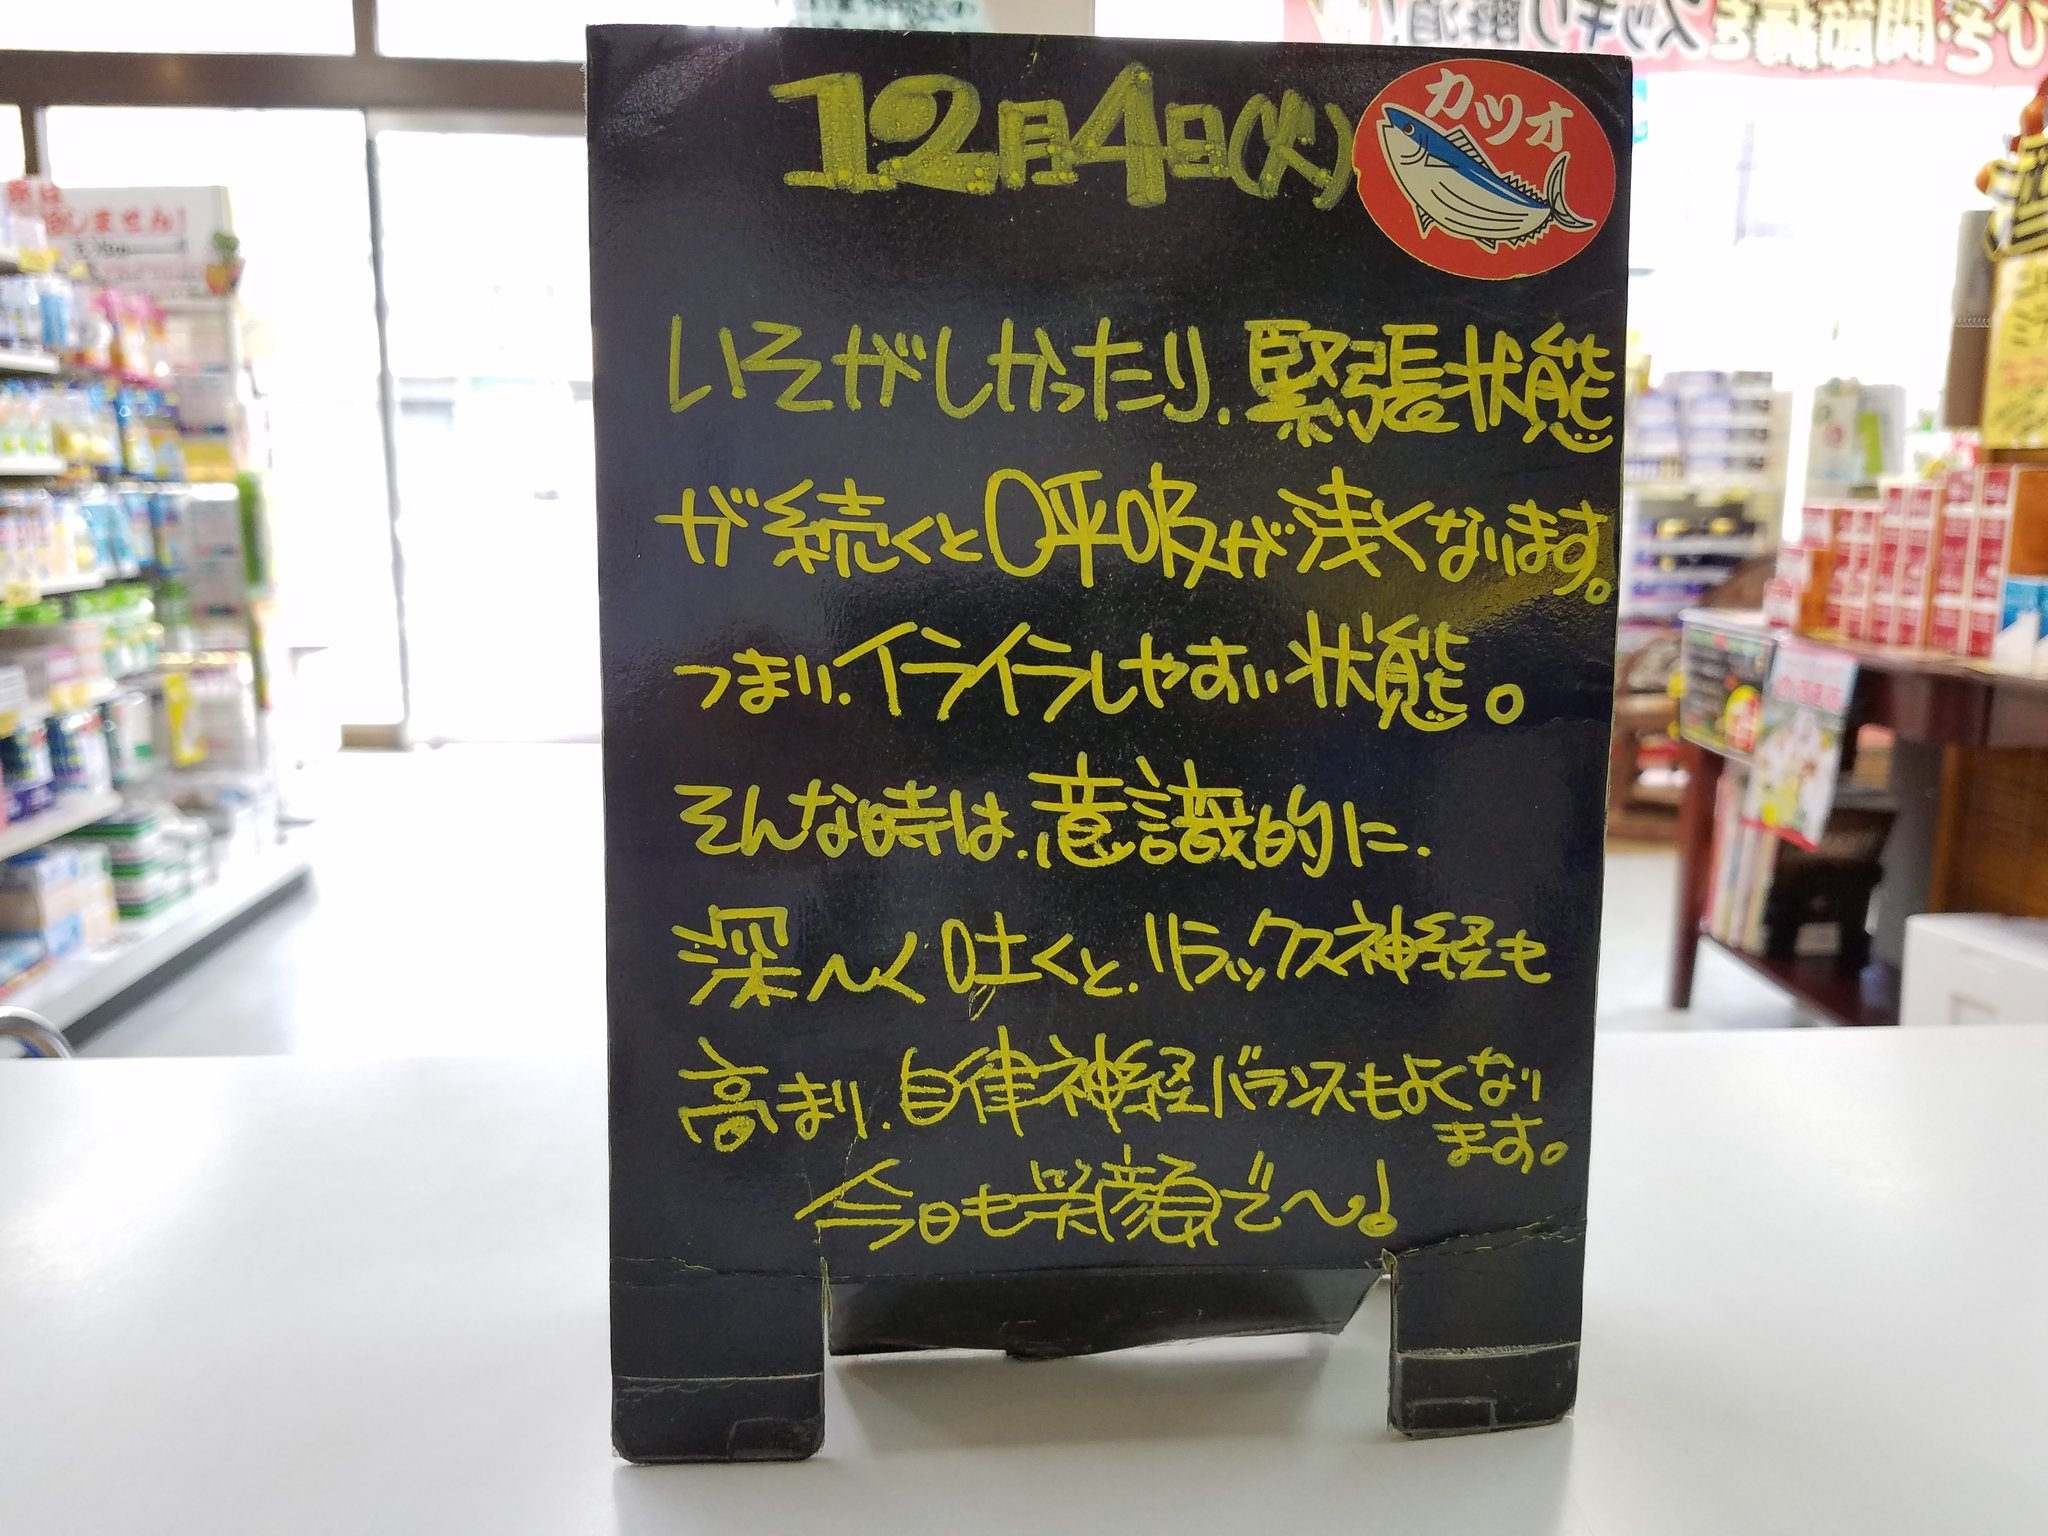 12月4日(火)
カツオ
いそがしかったり、緊張状態
が続くと呼吸が浅くなります。
つまり、イライラしやすい状態。
そんな時は、意識的に、
深〜く吐くと、リラックス神経も
高まり、自律神経バランスもよくなり
ます。
今日も笑顔で〜!